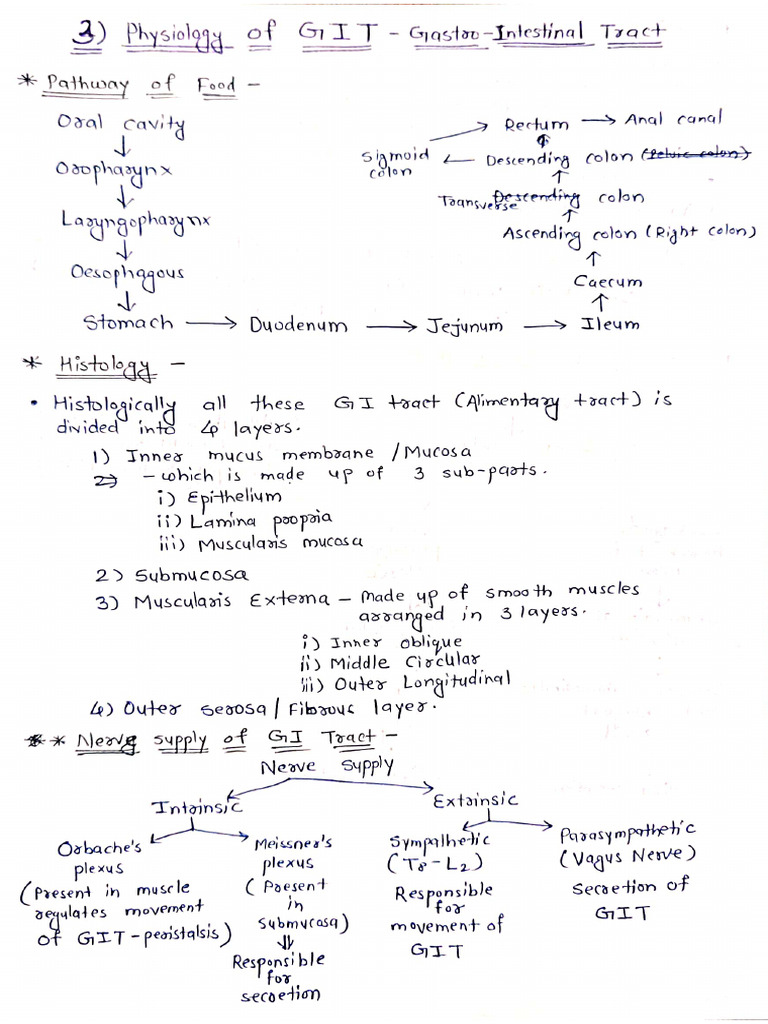 3) Physiology of GIT - Gastro-Intestinal Tract
* Pathway of Food -
Oral cavity
↓
Oropharynx
↓
Laryngopharynx
↓
Oesophagous
↓
Stomach → Duodenum → Jejunum → Ileum
↑
Caecum
↑
Ascending colon (Right colon)
↑
Transverse Descending colon
↑
Sigmoid colon ← Descending colon (Pelvic colon)
→ Rectum → Anal canal
* Histology -
• Histologically all these GI tract (Alimentary tract) is
divided into 4 layers.
1) Inner mucus membrane / Mucosa
2) - which is made up of 3 sub-parts.
i) Epithelium
ii) Lamina propria
iii) Muscularis mucosa
2) Submucosa
3) Muscularis Externa - made up of smooth muscles
arranged in 3 layers.
i) Inner oblique
ii) Middle Circular
iii) Outer Longitudinal
4) Outer serosa / Fibrous layer.
* * Nerve supply of GI Tract -
Nerve supply
Intrinsic
Extrinsic
Orbache's
plexus
(Present in muscle
regulates movement
of GIT - peristalsis)
Meissner's
plexus
(Present
in
submucosa)
⇓
Responsible
for
secretion
Sympathetic
(T8-L2)
Responsible
for
movement of
GIT
Parasympathetic
(Vagus Nerve)
Secretion of
GIT